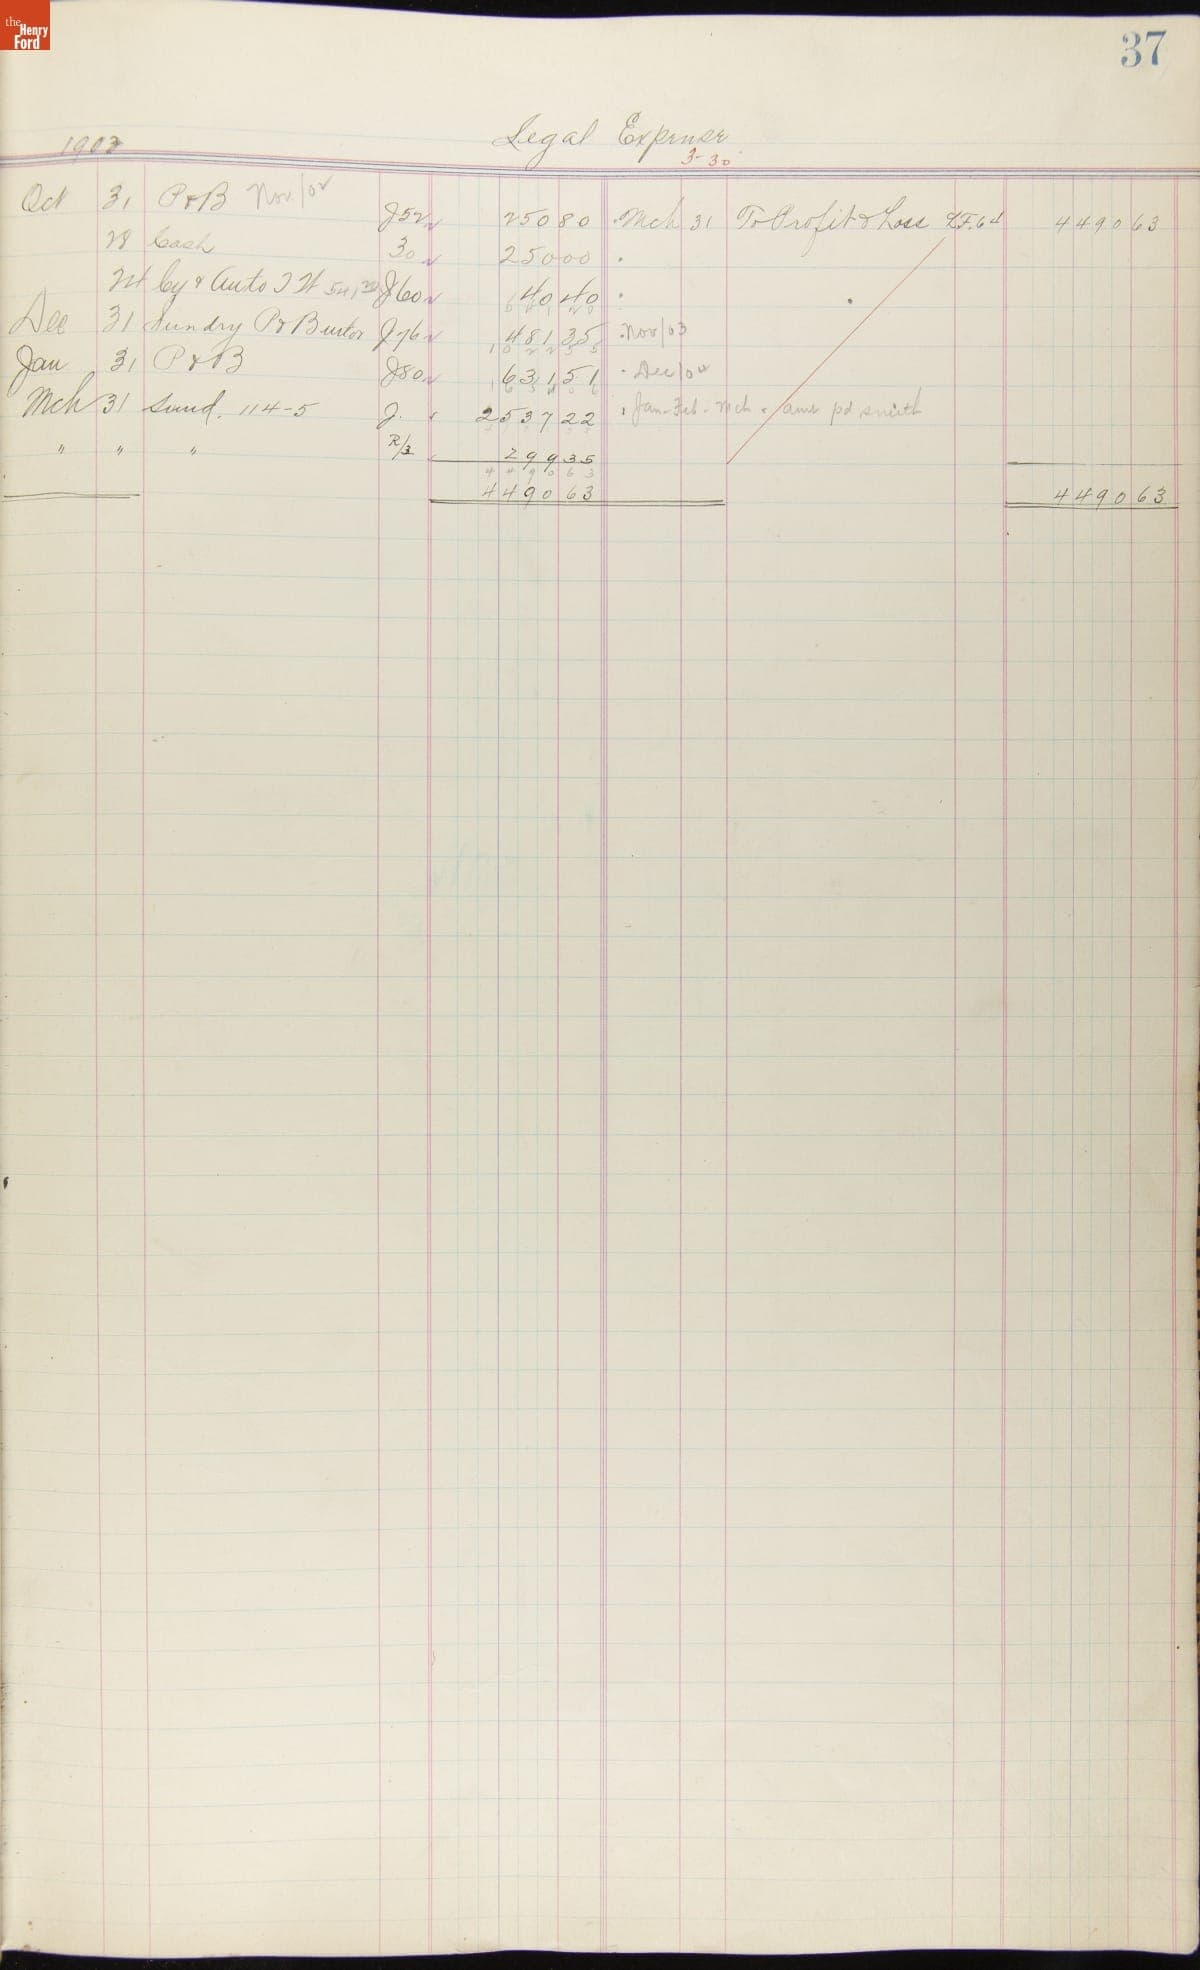 the Henry Ford
37
1903 Legal Expense
3-30
Oct 31 P & B Nov/02 J52 250 80 Mch 31 To Profit & Loss LF.64 4490 63
28 Cash 30 250 00
24 Cy & Auto J60 40 40
Dec 31 Sundry P & B J76 481 35 Nov/03
Jan 31 P & B J80 631 51 Dec/04
Mch 31 Sund. 114-5 J. 2537 22 Jan-Feb-Mch & amt pd smith
" " " R/3 299 35
4490 63
4490 63 4490 63